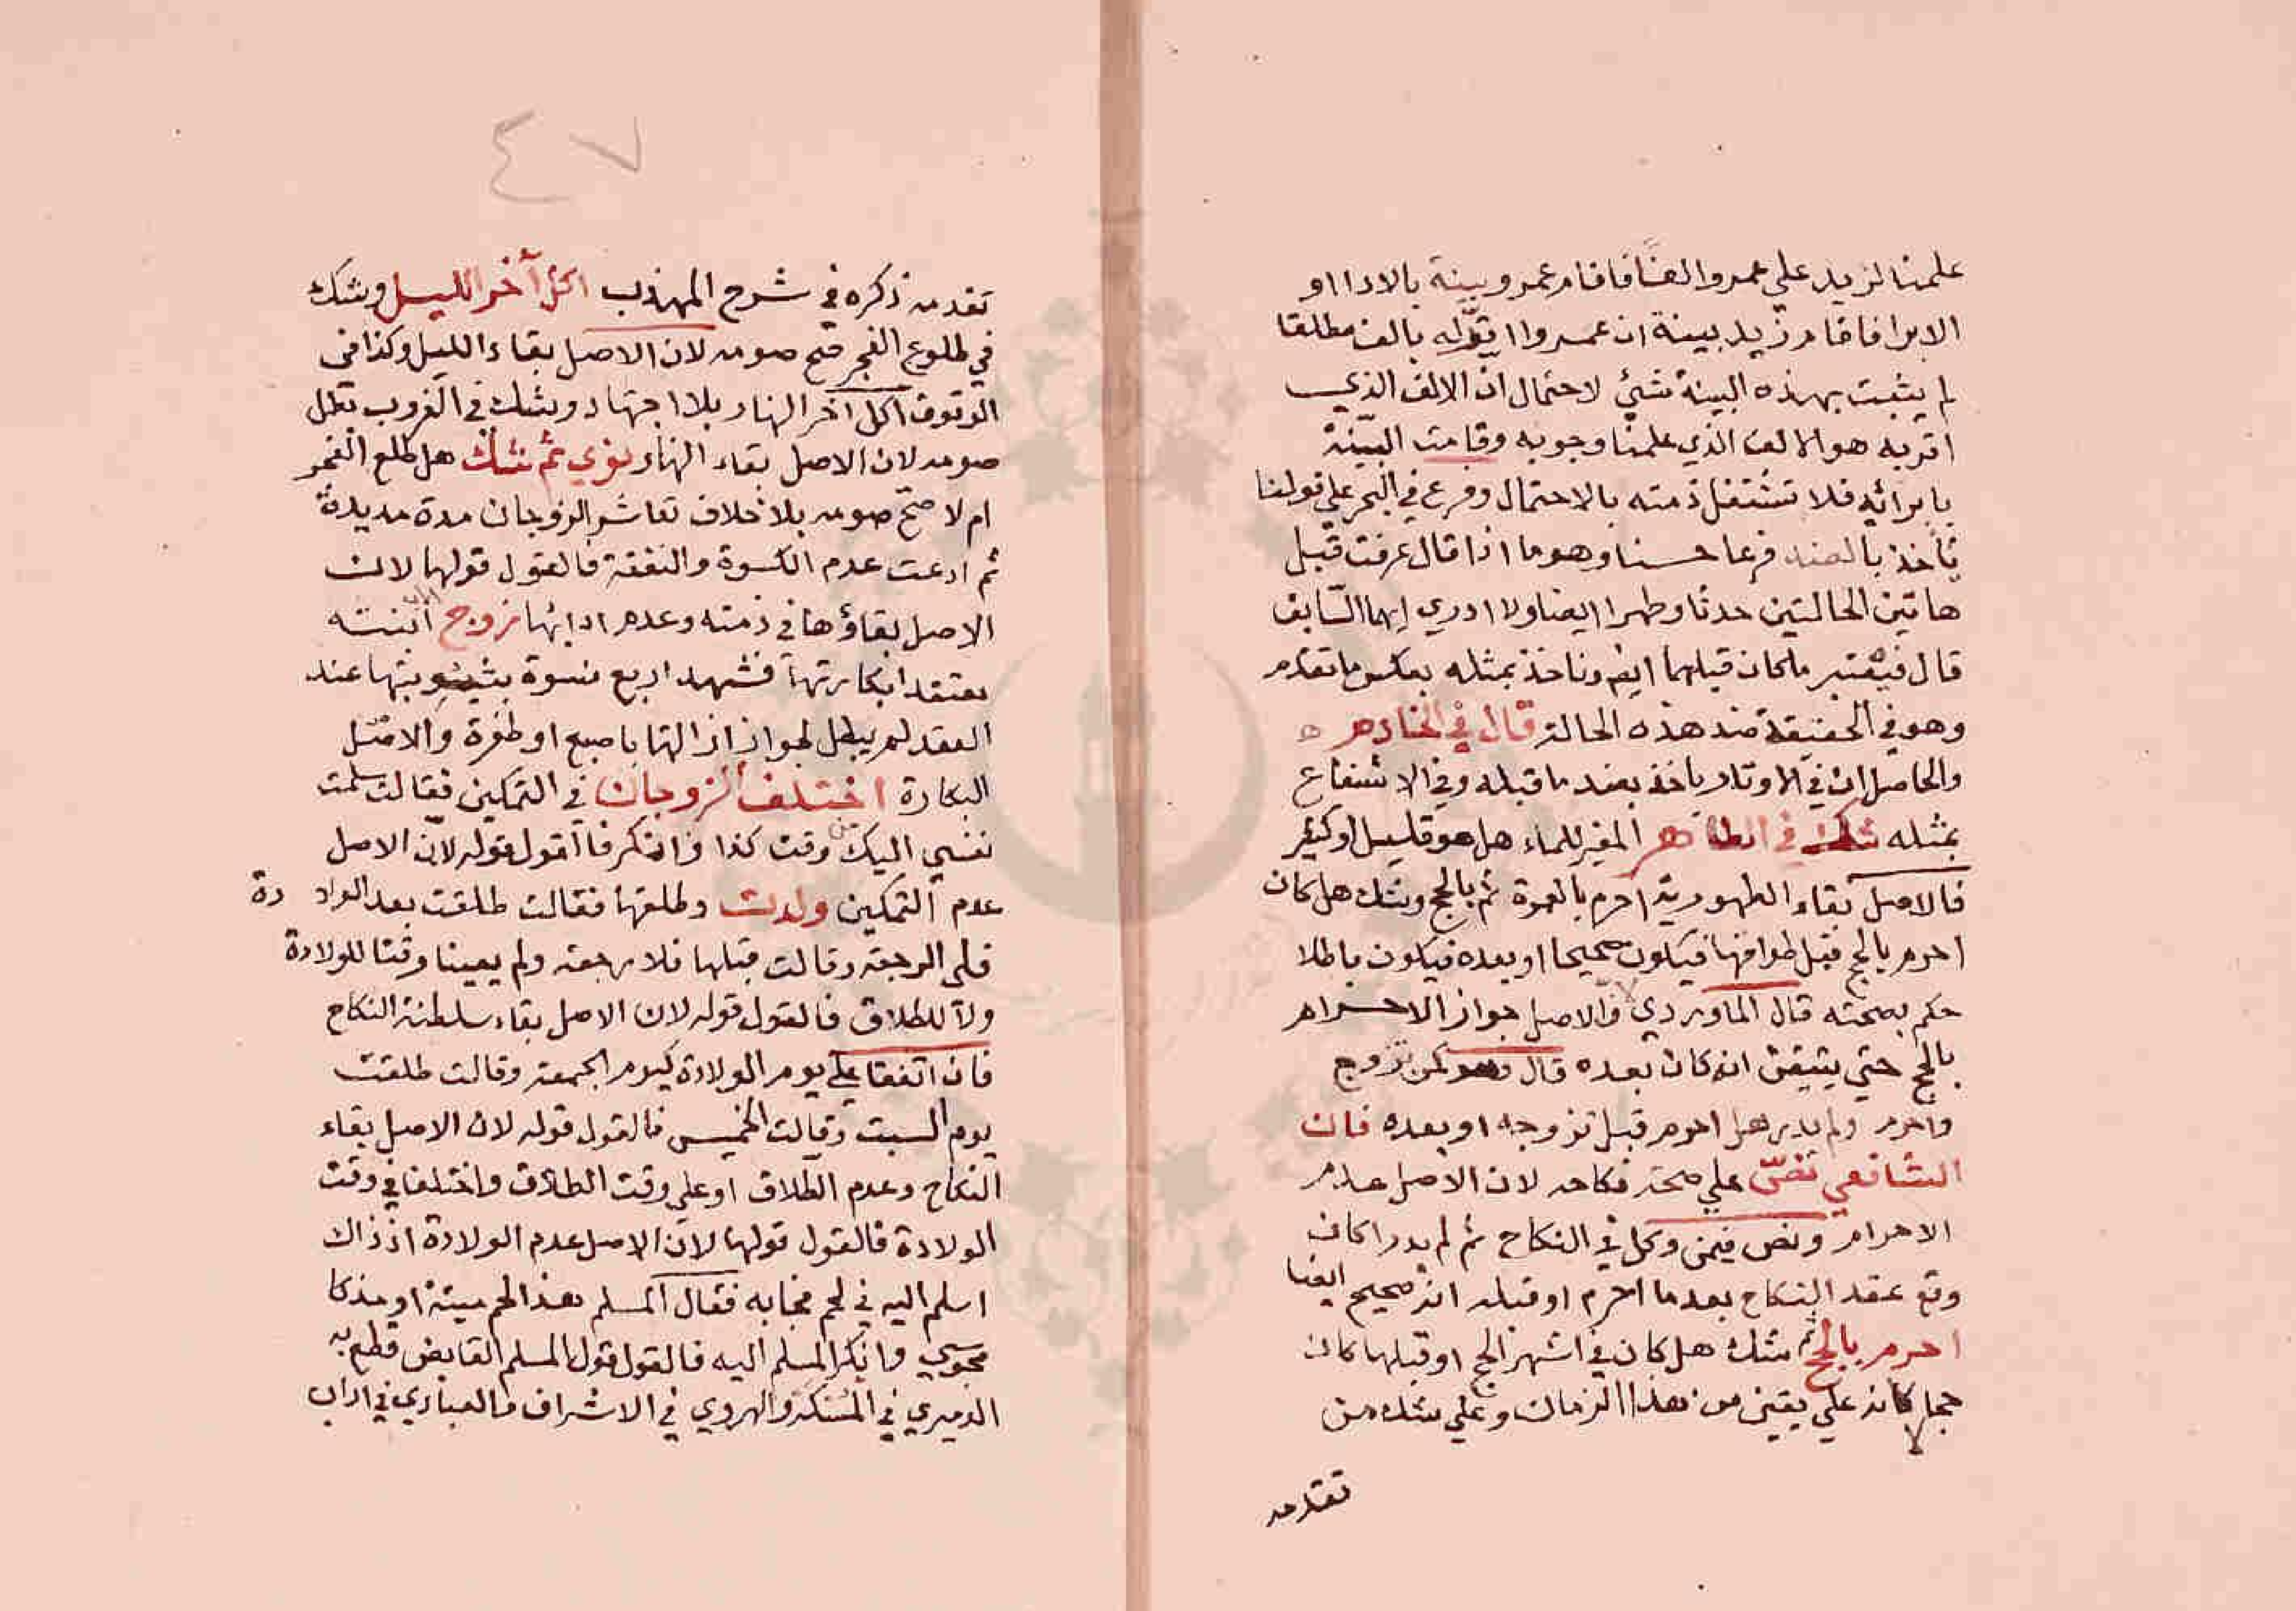 علمنا لزيد علي عمرو الفا فاقام عمرو بينة بالادا او
الابرا فاقام زيد بينة ان عمروا اقر له بالف مطلقا
لم يثبت بهذه البينة شئ لاحتمال ان الالف الذي
اقر به هو الالف الذي علمنا وجوبه وقامت البينة
بابرائه فلا تشتغل ذمته بالاحتمال وفرع في البحر علي قولنا
ياخذ بالضد فرعا حسنا وهو ما اذا قال عرفت قبل
هاتين الحالتين حدثا وطهرا ايضا ولا ادري ايهما السابق
قال فيعتبر ماكان قبلهما ايضا وناخذ بمثله بعكس ماتقدم
وهو في الحقيقة ضد هذه الحالة قال في الخادم ه
والحاصل ان في الاوتار ياخذ بضد ما قبله وفي الاشفاع
بمثله شك في الطاهر المغير للماء هل هو قليل او كثير
فالاصل بقاء الطهورية احرم بالعمرة ثم بالحج وشك هل كان
احرم بالحج قبل طوافها فيكون صحيحا او بعده فيكون باطلا
حكم بصحته قال الماوردي والاصل جواز الاحرام
بالحج حتي يتيقن انه كان بعده قال وهو كمن تزوج
واحرم ولم يدر هل احرم قبل تزوجه او بعده فان
الشافعي نص علي صحة نكاحه لان الاصل عدم
الاحرام ونص فيمن وكل في النكاح ثم لم يدر اكان
وقع عقد النكاح بعد ما احرم او قبله انه صحيح ايضا
احرم بالحج ثم شك هل كان في اشهر الحج او قبلها كان
حجا لانه علي يقين من هذا الزمان وعلي شك من
تقدمه
٤٧
تقدمه ذكره في شرح المهذب اكل آخر الليل وشك
في طلوع الفجر صح صومه لان الاصل بقاء الليل وكذا في
الوقوف اكل آخر النهار بلا اجتهاد وشك في الغروب بطل
صومه لان الاصل بقاء النهار نوي ثم شك هل طلع الفجر
ام لا صح صومه بلا خلاف تعاشر الزوجان مدة مديدة
ثم ادعت عدم الكسوة والنفقة فالقول قولها لان
الاصل بقاؤها في ذمته وعدم ادائها زوج ابنته
يعتقد ابكارتها فشهد اربع نسوة بثيوبتها عند
العقد لم يبطل لجواز ازالتها باصبع او طفرة والاصل
البكارة اختلف الزوجان في التمكين فقالت سلمت
نفسي اليك من وقت كذا وانكر فالقول قوله لان الاصل
عدم التمكين ولدت وطلقها فقالت طلقت بعد الولا دة
فلي الرجعة وقالت قبلها فلا رجعة ولم يعينا وقتا للولادة
ولا للطلاق فالقول قوله لان الاصل بقاء سلطنة النكاح
فان اتفقا علي يوم الولادة كيوم الجمعة وقالت طلقت
يوم السبت وقالت الخميس فالقول قوله لان الاصل بقاء
النكاح وعدم الطلاق او علي وقت الطلاق واختلفا في وقت
الولادة فالقول قولها لان الاصل عدم الولادة اذ ذاك
اسلم اليه في لحم فجا به فقال المسلم هذا لحم ميتة او مذكا
مجوسي وانكر المسلم اليه فالقول قول المسلم القابض قطع به
الدميري في والهروي في الاشراف والعبادي في اداب